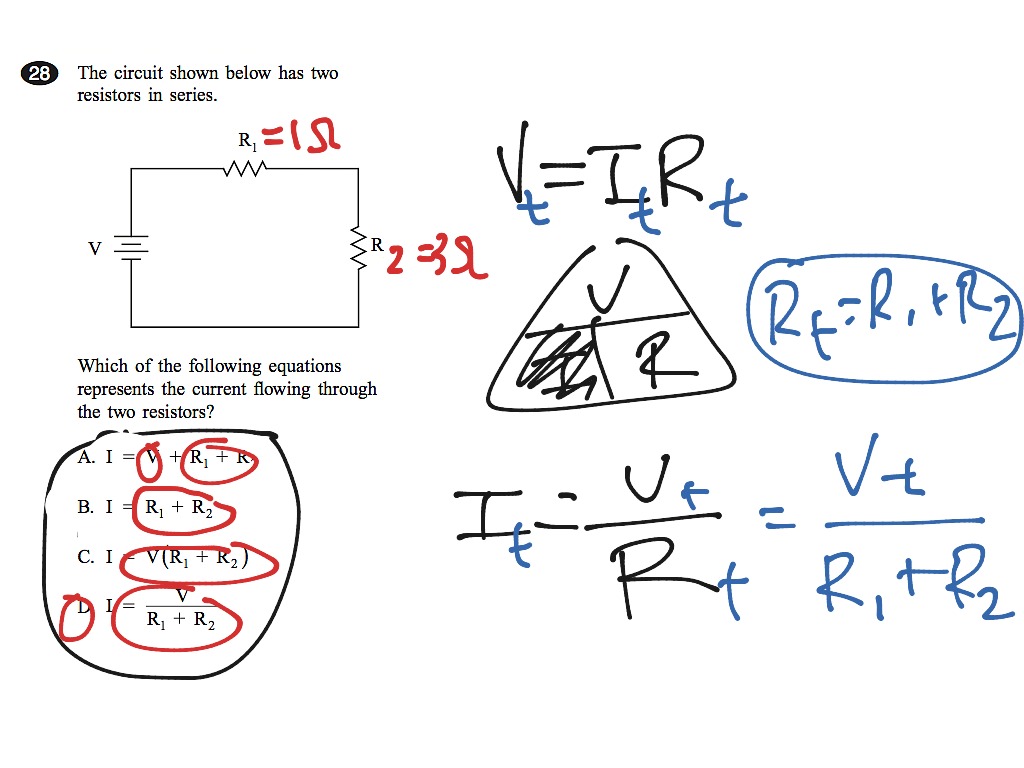 28 The circuit shown below has two
resistors in series.
R₁ =1Ω
V
R 2 =3Ω
Which of the following equations
represents the current flowing through
the two resistors?
A. I = V + R₁ + R
B. I = R₁ + R₂
C. I = V(R₁ + R₂)
D. I = V
R₁ + R₂
Vt = It Rt
V
R
Rt = R₁ + R₂
It = Vt / Rt = Vt / R₁ + R₂